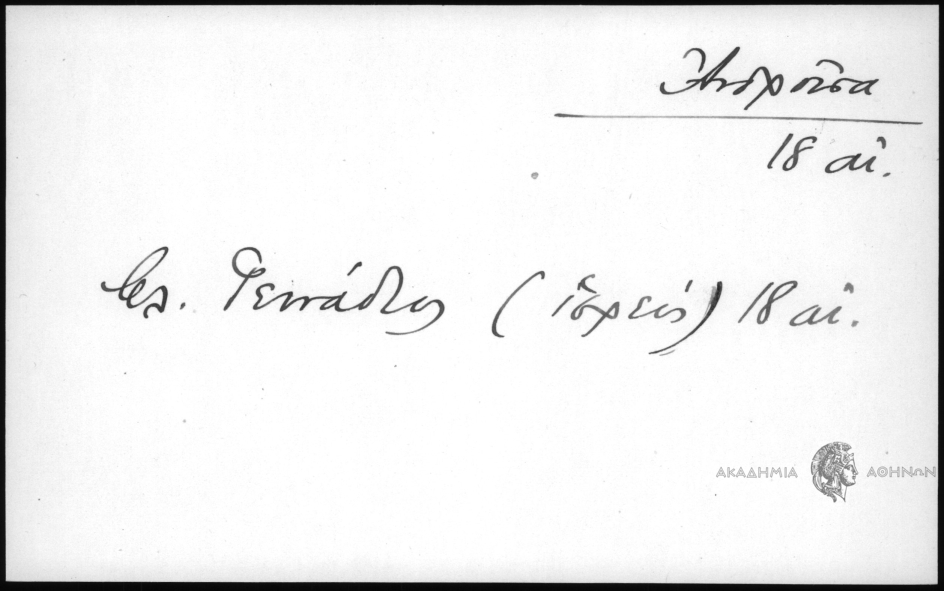 Ἀνδροῦσα
18 αἰ.
βλ. Γεννάδιος (ἱερεύς) 18 αἰ.
ΑΚΑΔΗΜΙΑ ΑΘΗΝΩΝ